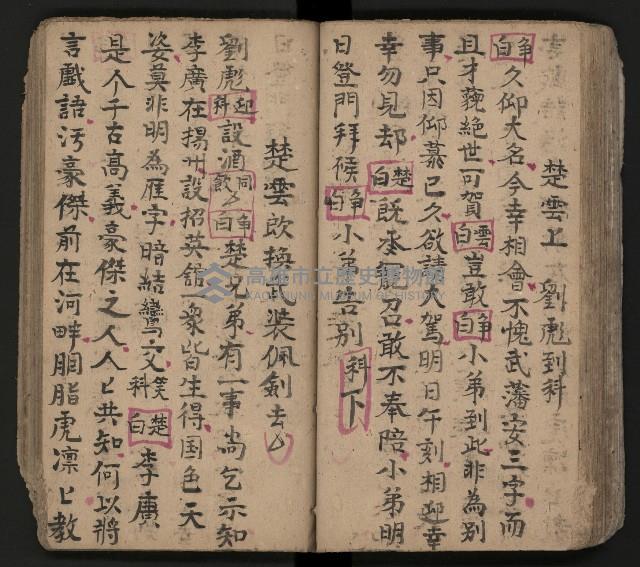 楚雲上　劉彪到科
争白久仰大名今幸相會不愧武藩安三字而
且才藝絶世可賀雲白豈敢争白小弟到此非為別
事只因仰慕已久欲請駕明日午刻相迎幸
幸勿見却楚白既承寵召敢不奉陪小弟明
日登門拜候争白小弟告别科下
楚雲欽换武装佩剑去
劉彪迎科設酒同飲争白楚兄弟有一事尚乞示知
李廣在揚州設招英舘一衆皆生得国色天
姿莫非明為雁字暗結鸞交笑科楚白李廣
是个千古高義豪傑之人人匕共知何以將
言戲語污豪傑前在河畔胭脂虎凛匕教
高雄市立歷史博物館
KAOHSIUNG MUSEUM OF HISTORY